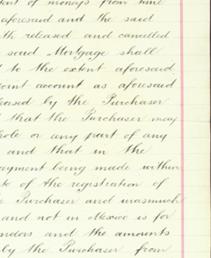 of moneys from time
aforesaid and the said
released and cancelled
said Mortgage shall
to the extent aforesaid
account as aforesaid
by the Purchaser
that the Purchaser may
or any part of any
and that in the
being made within
of the registration of
Purchaser and inasmuch
and not in Mexico is for
and the amounts
by the Purchaser from